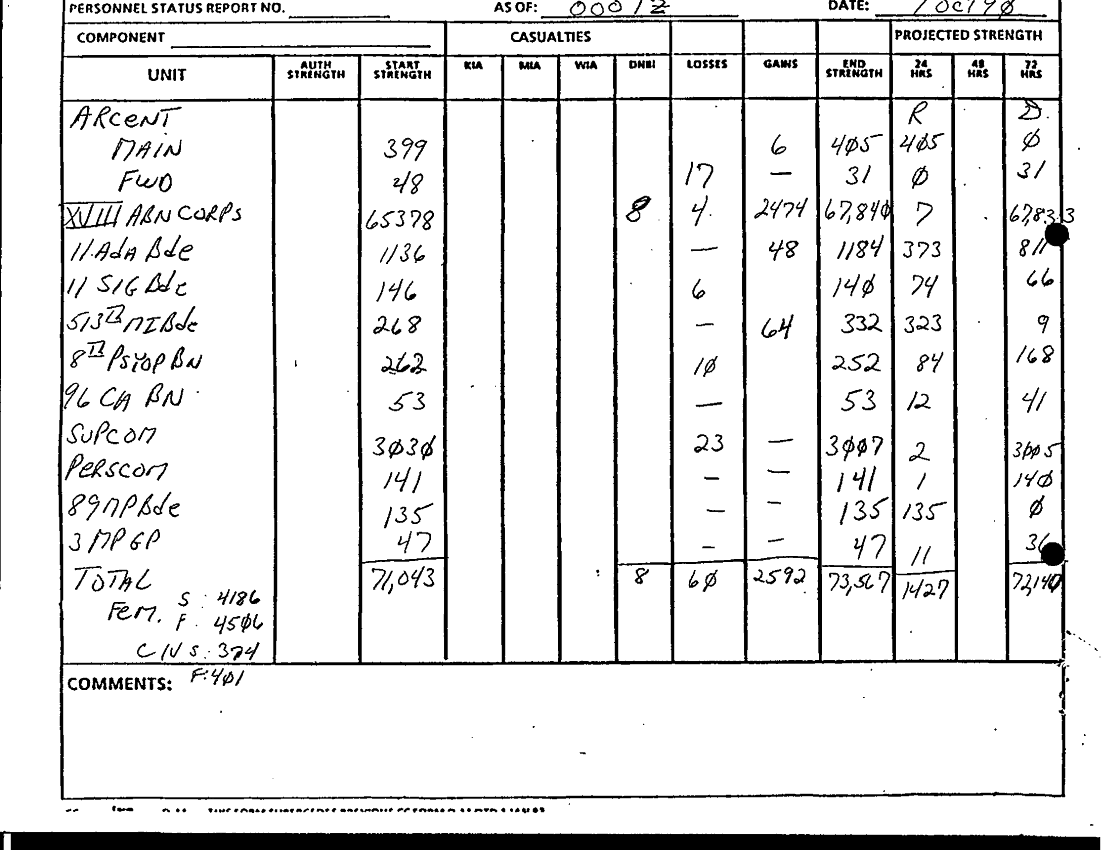 PERSONNEL STATUS REPORT NO. AS OF: 0001Z DATE: 1 Oct 9Ø
COMPONENT CASUALTIES PROJECTED STRENGTH
UNIT AUTH STRENGTH START STRENGTH KIA MIA WIA DNBI LOSSES GAINS END STRENGTH 24 HRS 48 HRS 72 HRS
ARCENT R D.
MAIN 399 6 4Ø5 4Ø5 Ø
FWD 48 17 — 31 Ø 31
XVIII ABN CORPS 65378 8 4 2474 67,84Ø 7 67,833
11 AdA Bde 1136 — 48 1184 373 811
11 SIG Bde 146 6 14Ø 74 66
513th MI Bde 268 — 64 332 323 9
8th PSYOP BN 262 1Ø 252 84 168
96 CA BN 53 — 53 12 41
SUPCOM 3Ø3Ø 23 — 3ØØ7 2 3ØØ5
PERSCOM 141 — — 141 1 14Ø
89 MP Bde 135 — — 135 135 Ø
3 MP GP 47 — — 47 11 36
TOTAL 71,043 8 6Ø 2592 73,567 1427 72,14Ø
Fem. S: 4186
F. 45Ø6
CIV S: 374
F: 4Ø1
COMMENTS: